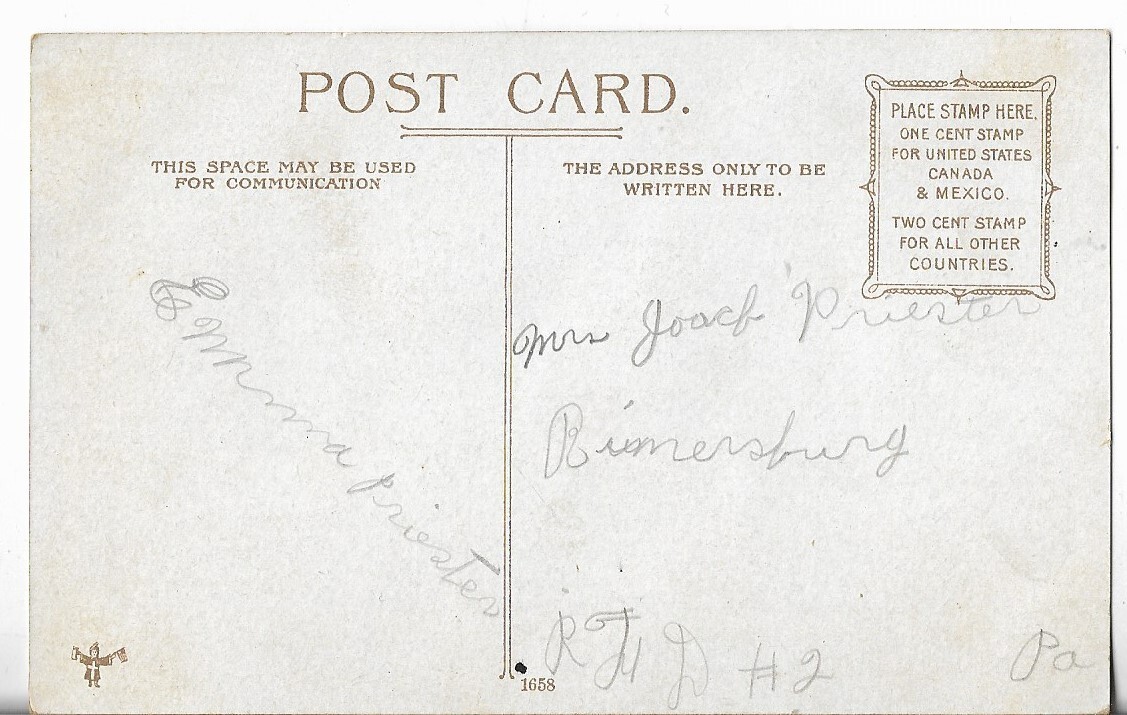 POST CARD.
THIS SPACE MAY BE USED
FOR COMMUNICATION
THE ADDRESS ONLY TO BE
WRITTEN HERE.
PLACE STAMP HERE.
ONE CENT STAMP
FOR UNITED STATES
CANADA
& MEXICO.
TWO CENT STAMP
FOR ALL OTHER
COUNTRIES.
Emma Priester
Mrs Joach Priester
Rimersburg
RFD #2 Pa
1658